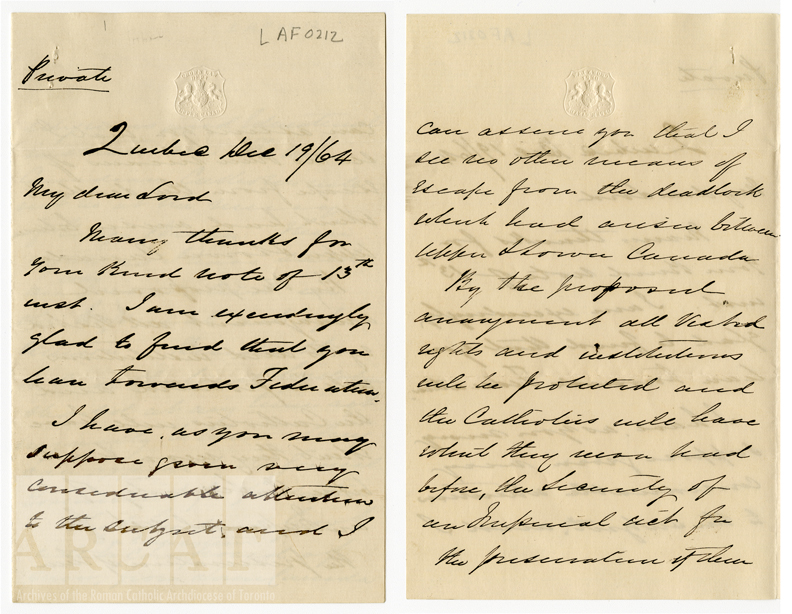 LAF0212
Private
Quebec Dec 19/64
My dear Lord
Many thanks for
your kind note of 13th
inst. I am exceedingly
glad to find that you
lean towards Federation.
I have, as you may
suppose given very
considerable attention
to the subject, and I
ARCAT
Archives of the Roman Catholic Archdiocese of Toronto
can assure you that I
see no other means of
escape from the deadlock
which had arisen between
Upper & Lower Canada
By the proposed
arrangement all vested
rights and institutions
will be protected and
the Catholics will have
what they never had
before, the security of
an Imperial act for
the preservation of their